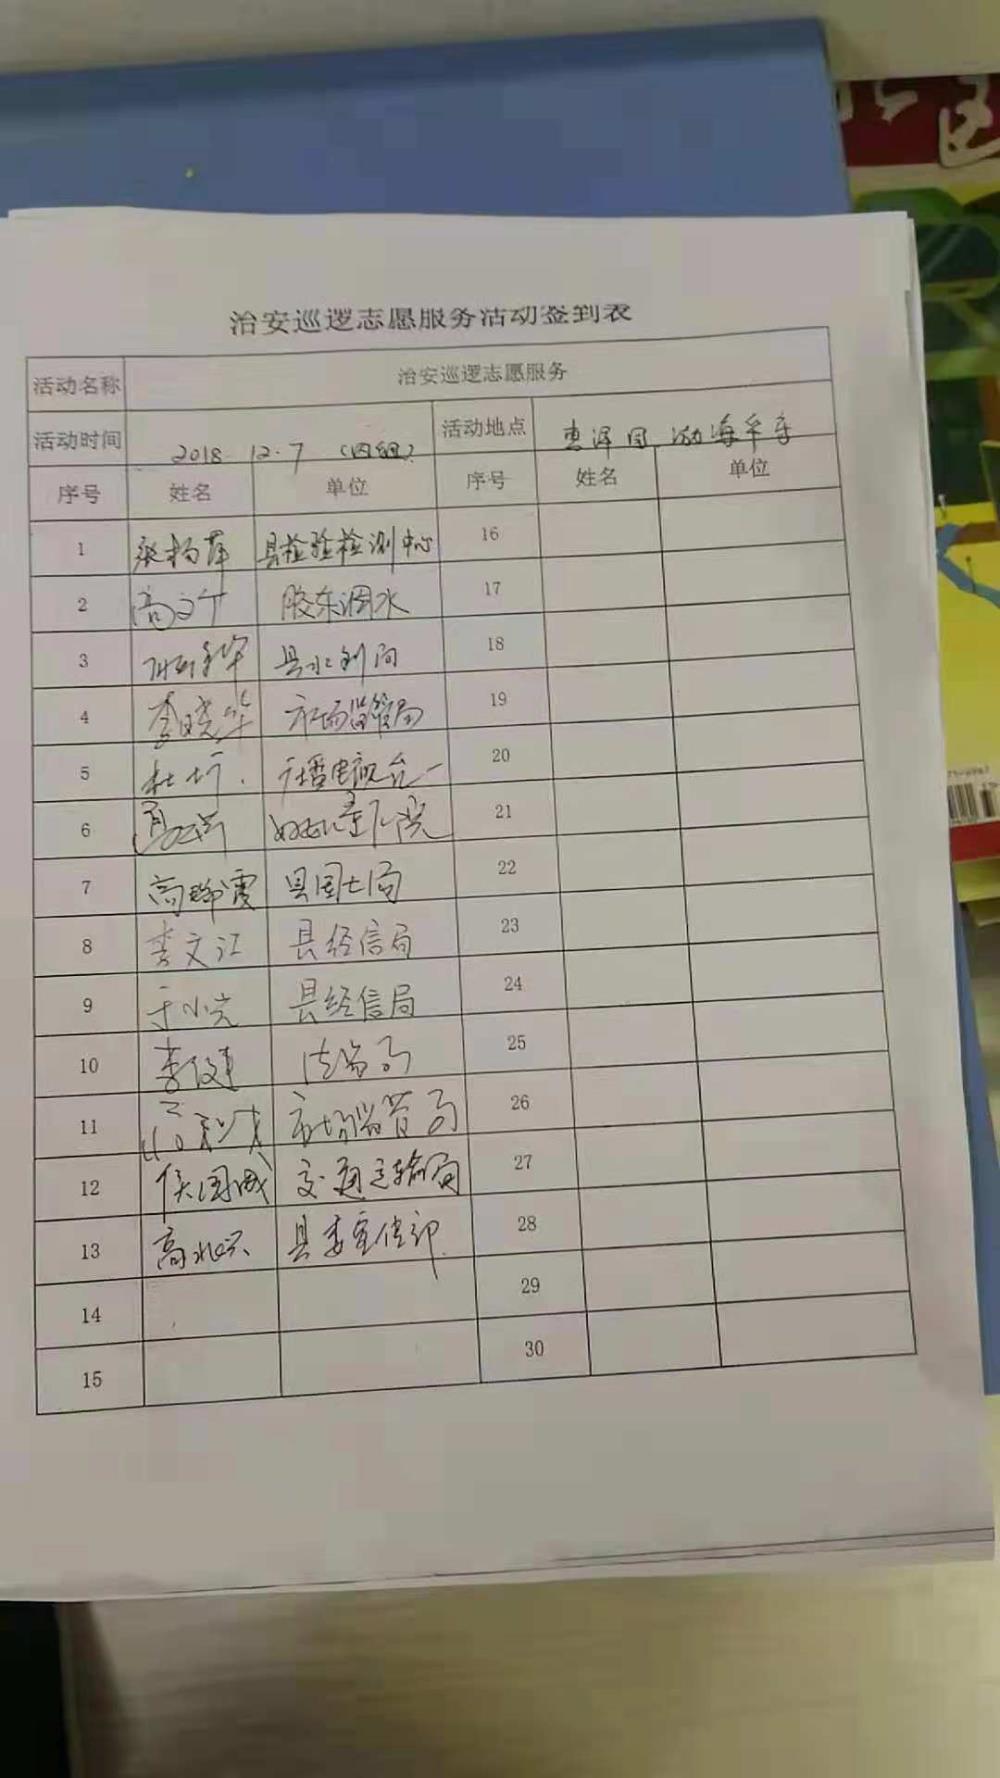 治安巡逻志愿服务活动签到表
活动名称 治安巡逻志愿服务
活动时间 2018.12.7 (四组) 活动地点
序号 姓名 单位 序号 姓名 单位
1 县检验检测中心 16
2 高文个 胶东调水 17
3 县水利局 18
4 李晓华 市场监管局 19
5 广播电视台 20
6 21
7 高瑞霞 县国土局 22
8 李文江 县经信局 23
9 于小光 县经信局 24
10 李俊建 25
11 市场监管局 26
12 侯国威 交通运输局 27
13 高兆兴 县委宣传部 28
14 29
15 30